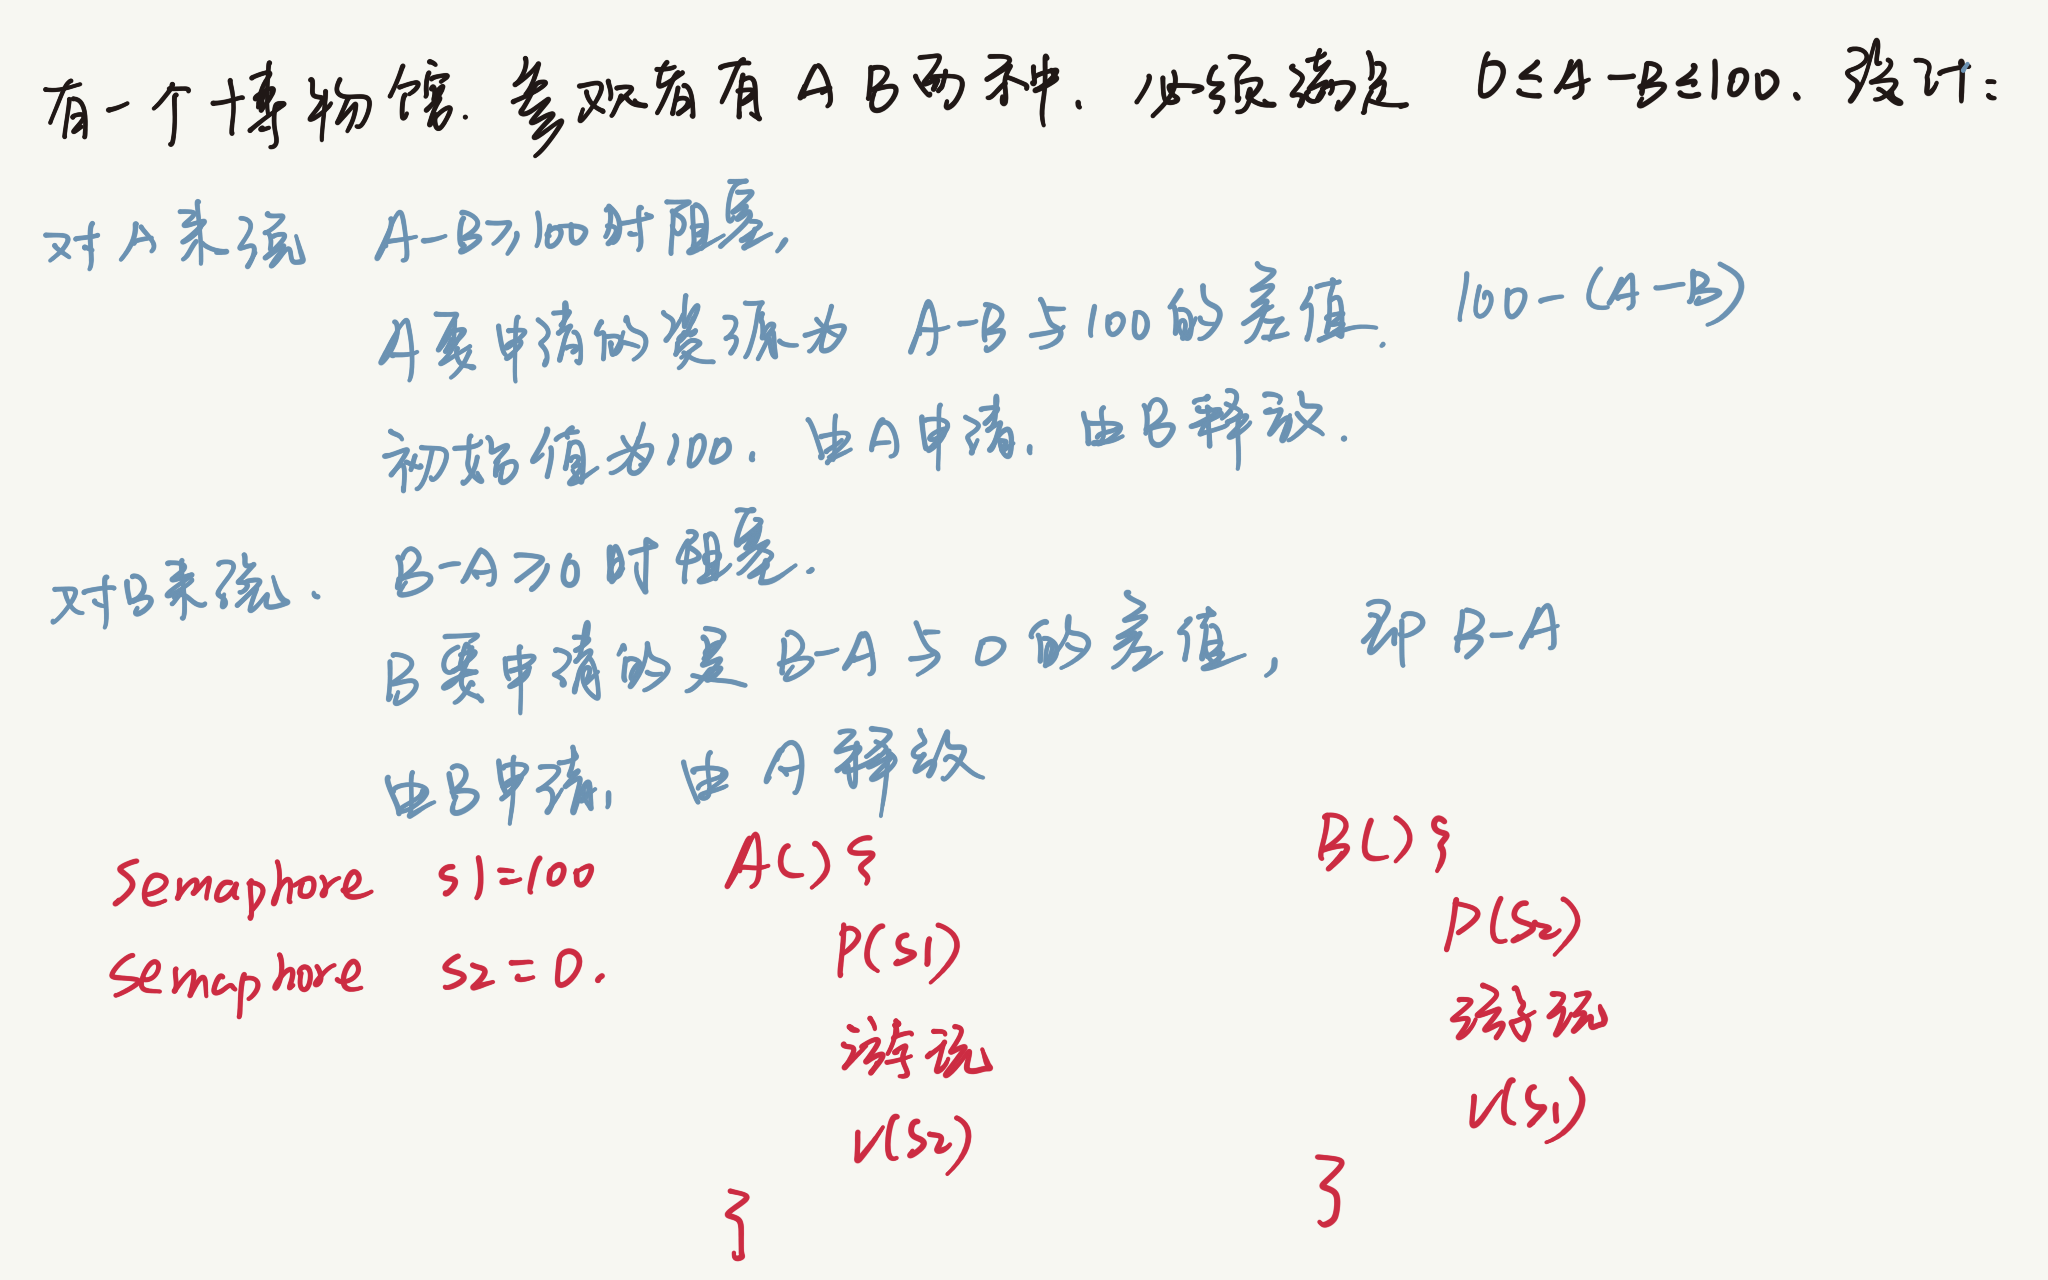 有一个博物馆. 参观者有 A B两种. 必须满足 0≤A-B≤100. 设计:
对A来说 A-B≥100时阻塞,
A要申请的资源为 A-B与100的差值. 100-(A-B)
初始值为100. 由A申请. 由B释放.
对B来说. B-A≥0时阻塞.
B要申请的是 B-A与0的差值, 即 B-A
由B申请, 由A释放
Semaphore s1=100
Semaphore s2=0.
A(){
P(s1)
游玩
V(s2)
}
B(){
P(s2)
游玩
V(s1)
}